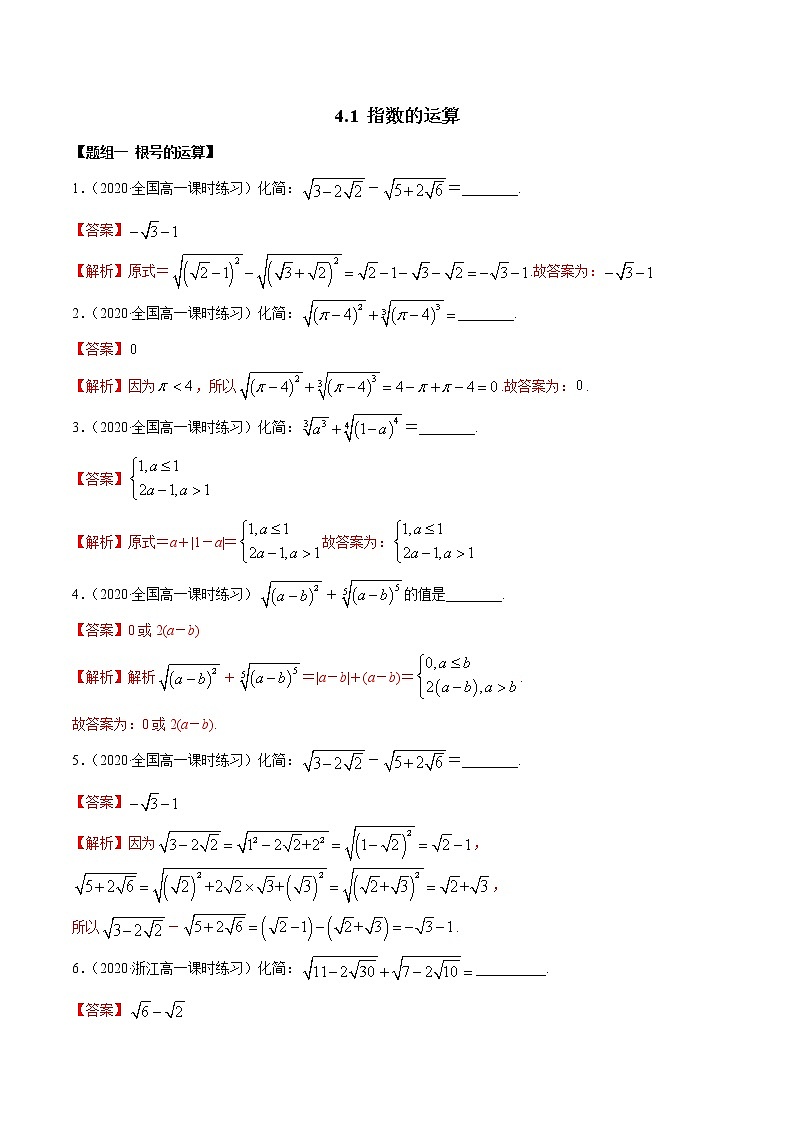 4.1 指数的运算
【题组一 根号的运算】
1.（2020·全国高一课时练习）化简：√(3−2√2)－√(5+2√6)＝________.
【答案】−√3−1
【解析】原式＝√((√2−1)²)−√((√3+√2)²)=√2−1−√3−√2=−√3−1.故答案为：−√3−1
2.（2020·全国高一课时练习）化简：√((π−4)²)+∛((π−4)³)=________.
【答案】0
【解析】因为π<4，所以√((π−4)²)+∛((π−4)³)=4−π+π−4=0.故答案为：0.
3.（2020·全国高一课时练习）化简：∛(a³)+∜((1−a)⁴)＝________.
【答案】{1,a≤1
2a−1,a>1
【解析】原式＝a＋|1－a|＝{1,a≤1 2a−1,a>1 故答案为：{1,a≤1 2a−1,a>1
4.（2020·全国高一课时练习）√((a−b)²)＋⁵√((a−b)⁵)的值是________.
【答案】0或2(a－b)
【解析】解析√((a−b)²)＋⁵√((a−b)⁵)＝|a－b|＋(a－b)＝{0,a≤b 2(a−b),a>b.
故答案为：0或2(a－b).
5.（2020·全国高一课时练习）化简：√(3−2√2)－√(5+2√6)＝________.
【答案】−√3−1
【解析】因为√(3−2√2)=√(1²−2√2+2²)=√((1−√2)²)=√2−1，
√(5+2√6)=√((√2)²+2√2×√3+(√3)²)=√((√2+√3)²)=√2+√3，
所以√(3−2√2)－√(5+2√6)=(√2−1)−(√2+√3)=−√3−1.
6.（2020·浙江高一课时练习）化简：√(11−2√30)+√(7−2√10)=__________.
【答案】√6−√2